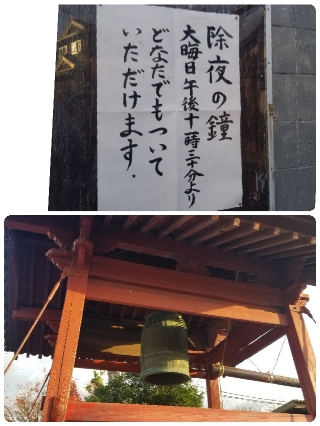 除夜の鐘
大晦日午後十一時三十分より
どなたでもついて
いただけます.